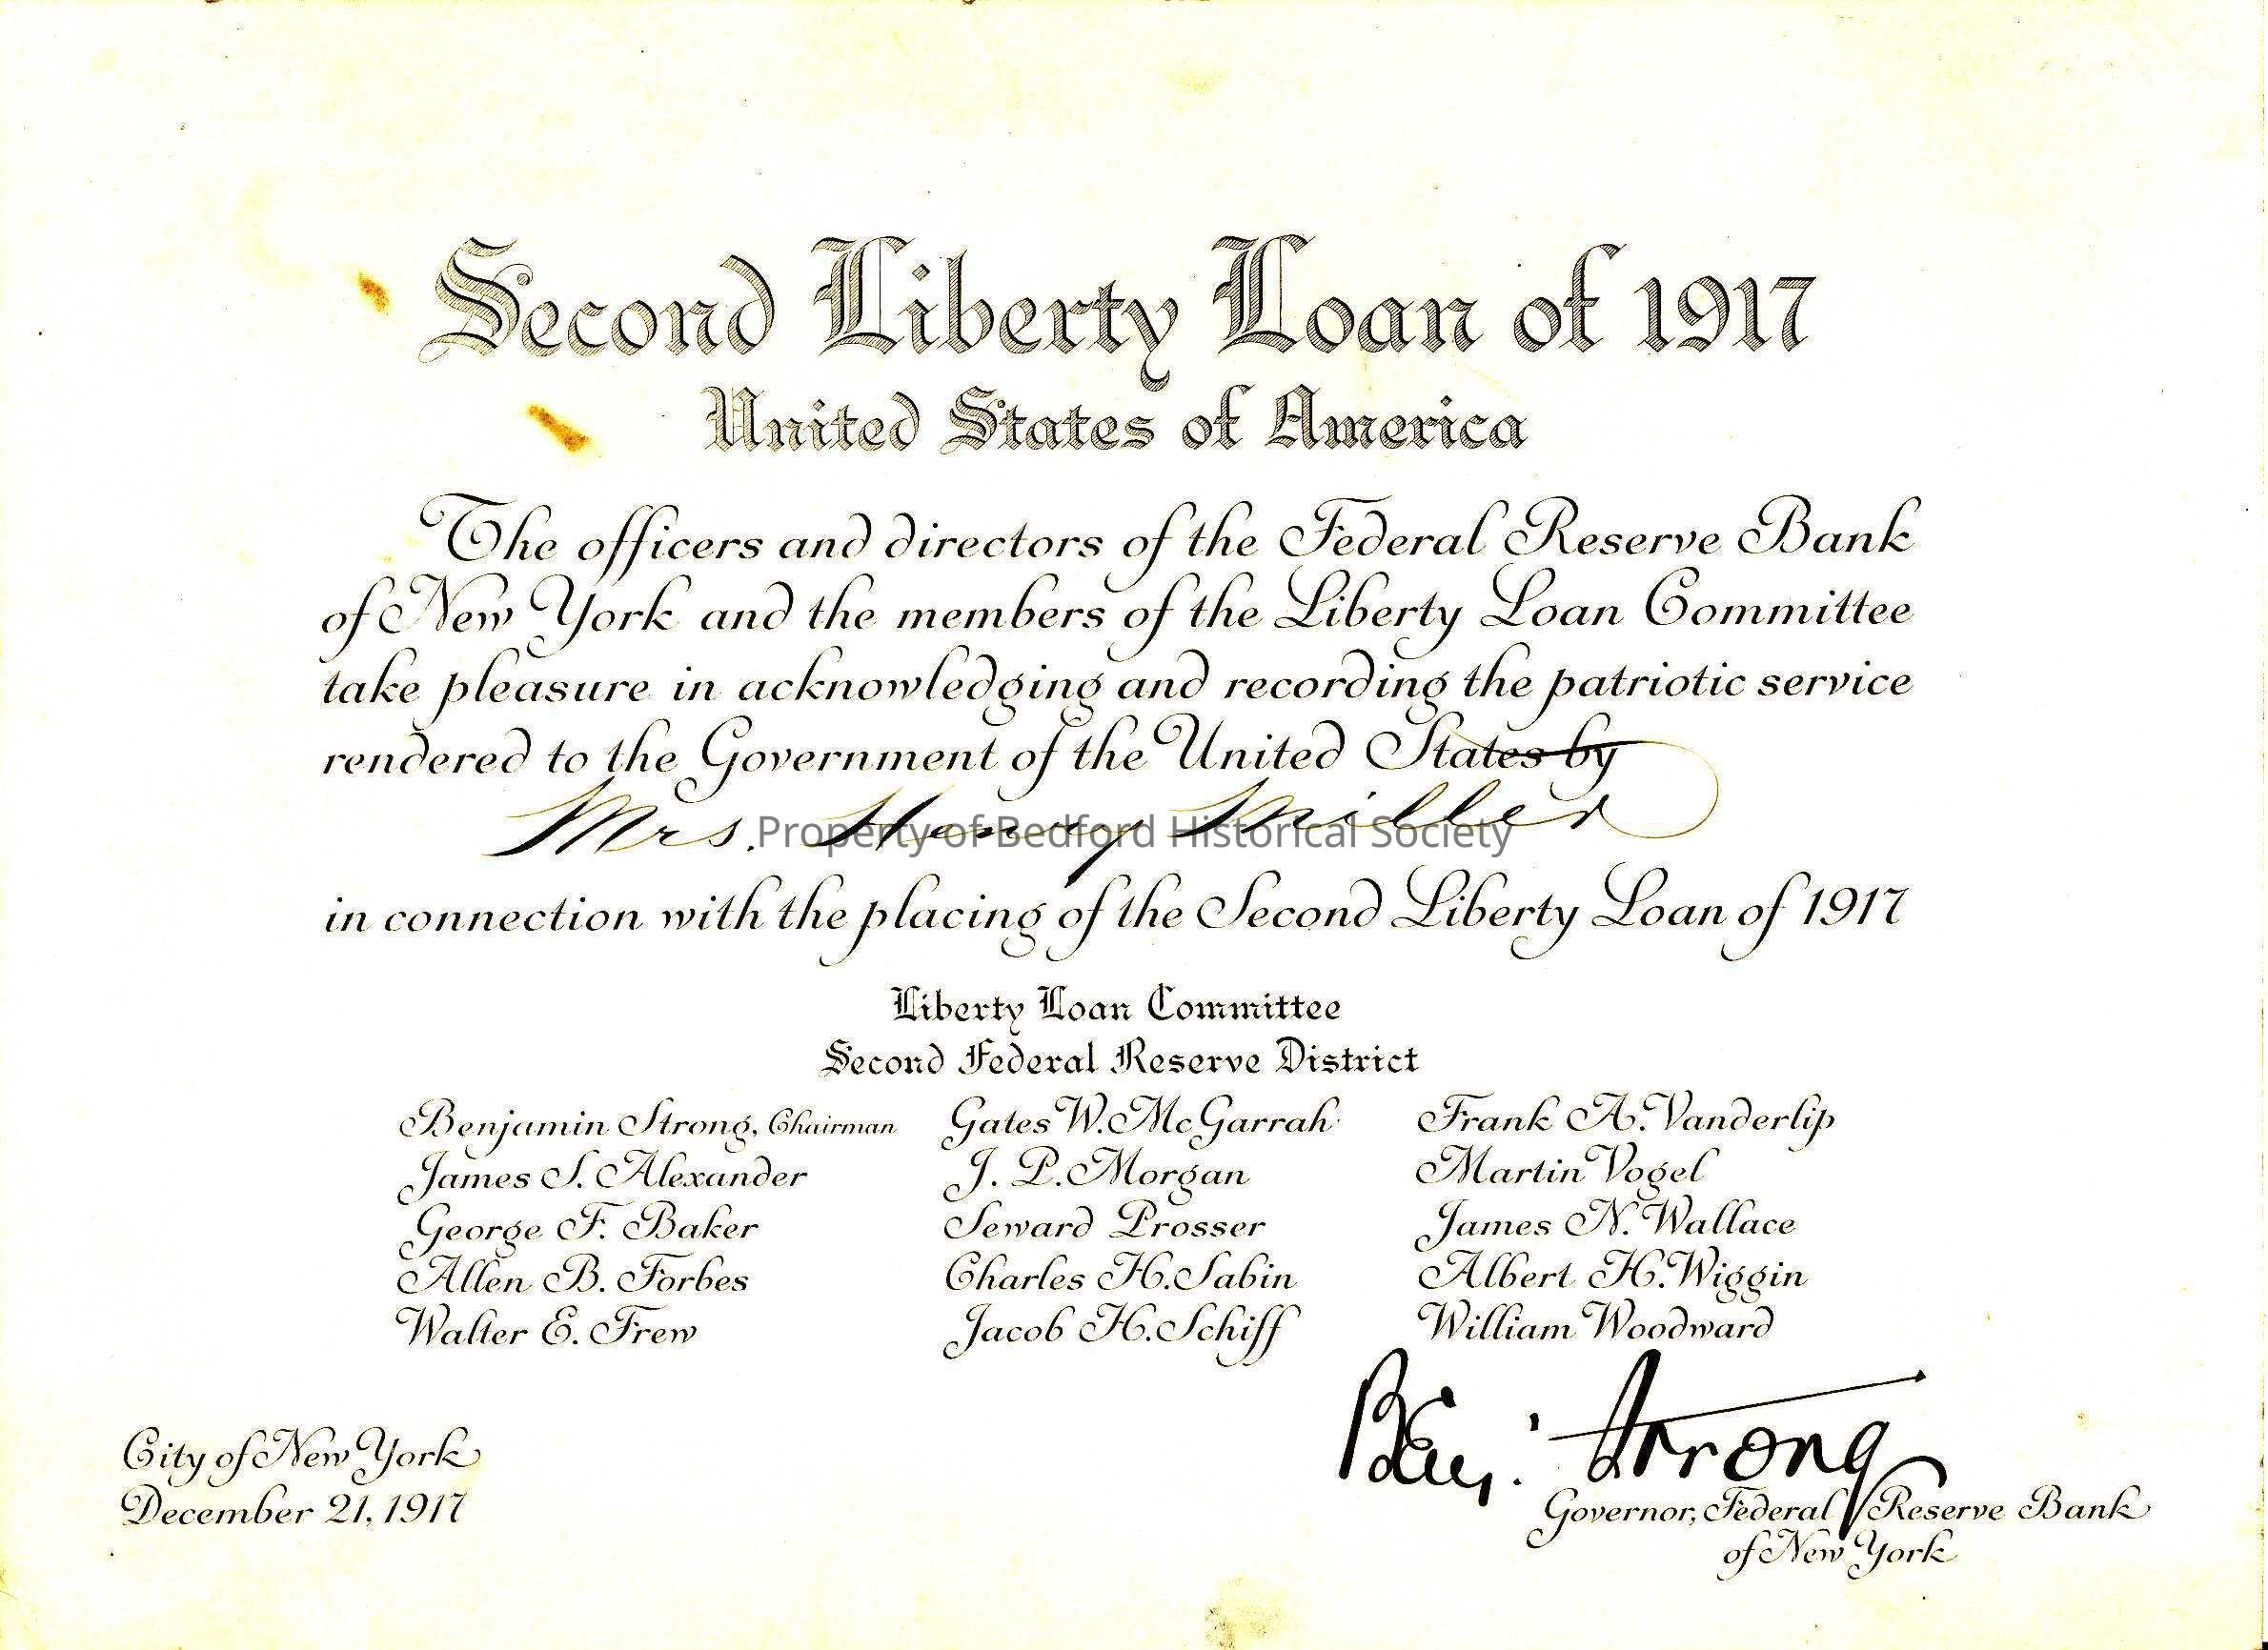 Second Liberty Loan of 1917
United States of America
The officers and directors of the Federal Reserve Bank
of New York and the members of the Liberty Loan Committee
take pleasure in acknowledging and recording the patriotic service
rendered to the Government of the United States by
Mrs. Henry Miller
Property of Bedford Historical Society
in connection with the placing of the Second Liberty Loan of 1917
Liberty Loan Committee
Second Federal Reserve District
Benjamin Strong, Chairman
James S. Alexander
George F. Baker
Allen B. Forbes
Walter E. Frew
Gates W. McGarrah
J. P. Morgan
Seward Prosser
Charles H. Sabin
Jacob H. Schiff
Frank A. Vanderlip
Martin Vogel
James N. Wallace
Albert H. Wiggin
William Woodward
City of New York
December 21, 1917
Benj. Strong
Governor, Federal Reserve Bank
of New York